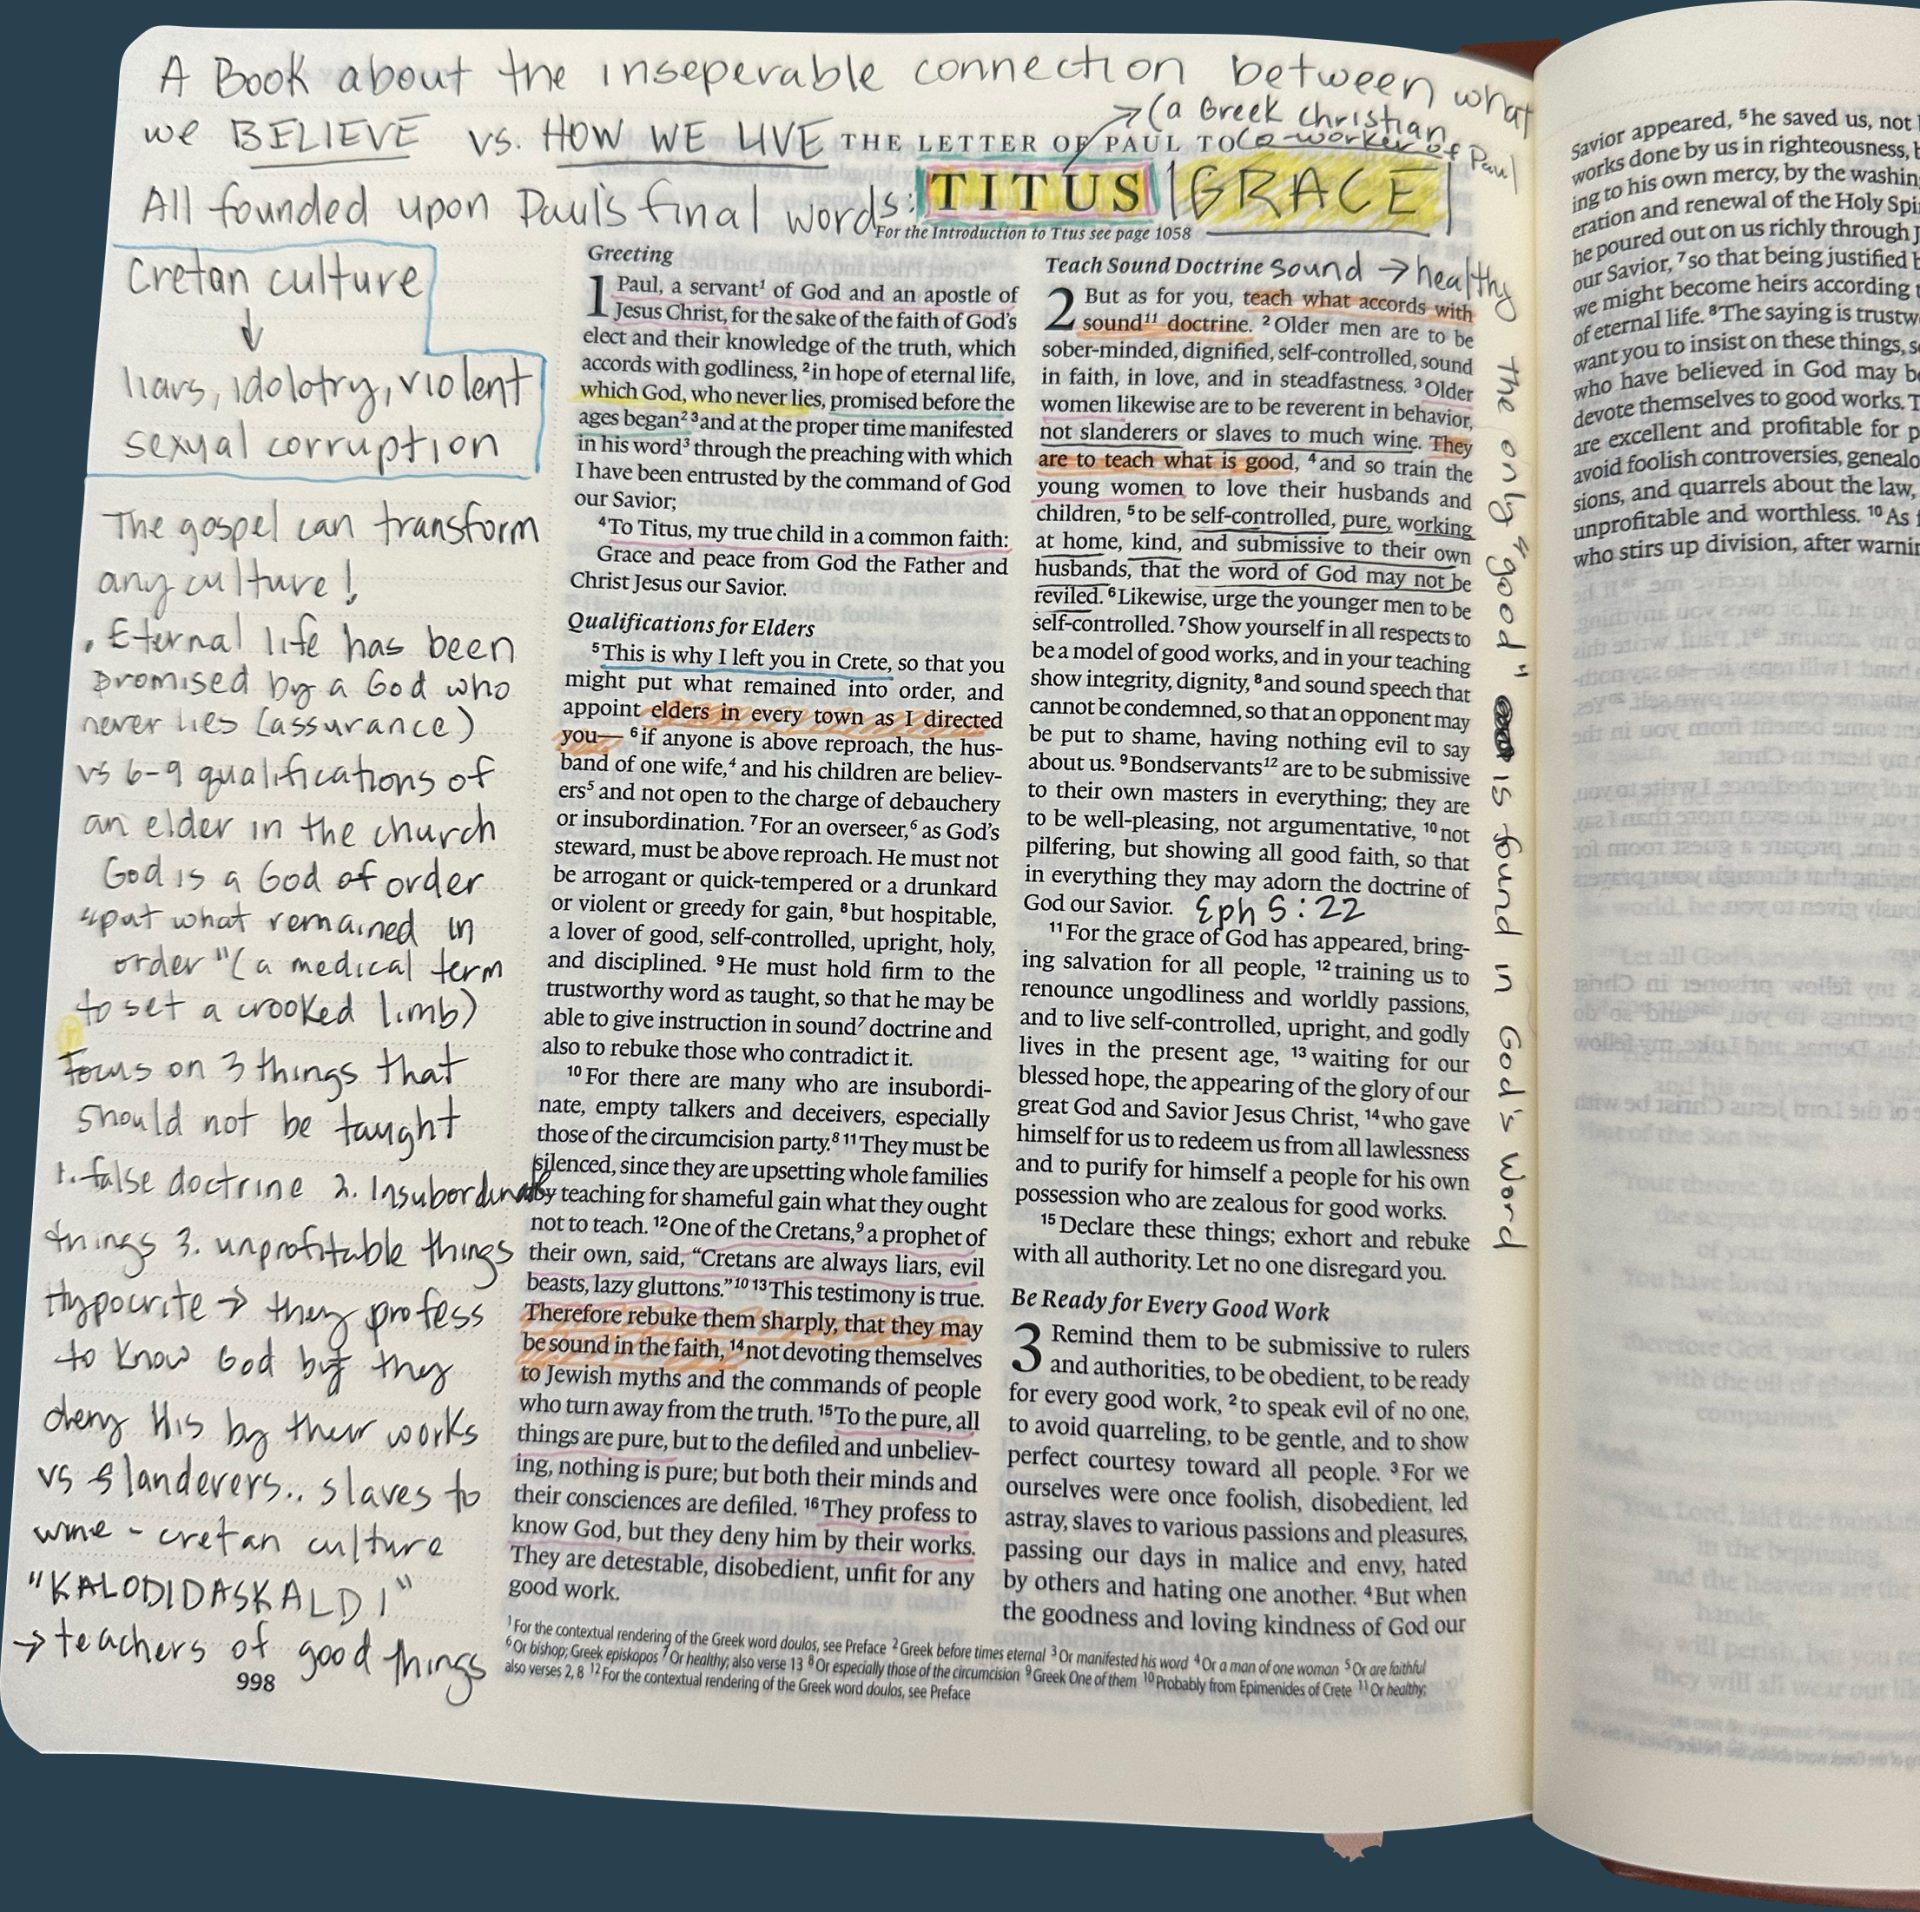 A Book about the inseperable connection between what
we BELIEVE vs. HOW WE LIVE
All founded upon Paul's final words: GRACE
→ (a Greek Christian
co-worker of Paul
THE LETTER OF PAUL TO
TITUS
For the Introduction to Ttus see page 1058
Cretan culture
↓
liars, idolotry, violent
sexual corruption
The gospel can transform
any culture!
. Eternal life has been
promised by a God who
never lies (assurance)
vs 6-9 qualifications of
an elder in the church
God is a God of order
"put what remained in
order" (a medical term
to set a crooked limb)
Focus on 3 things that
should not be taught
1. false doctrine 2. Insubordinate
things 3. unprofitable things
Hypocrite → they profess
to know God but they
deny His by their works
vs slanderers.. slaves to
wine - cretan culture
"KALODIDASKALDI"
→ teachers of good things
998
Greeting
1 Paul, a servant¹ of God and an apostle of
Jesus Christ, for the sake of the faith of God's
elect and their knowledge of the truth, which
accords with godliness, ²in hope of eternal life,
which God, who never lies, promised before the
ages began² ³and at the proper time manifested
in his word³ through the preaching with which
I have been entrusted by the command of God
our Savior;
⁴To Titus, my true child in a common faith:
Grace and peace from God the Father and
Christ Jesus our Savior.
Qualifications for Elders
⁵This is why I left you in Crete, so that you
might put what remained into order, and
appoint elders in every town as I directed
you— ⁶if anyone is above reproach, the hus-
band of one wife,⁴ and his children are believ-
ers⁵ and not open to the charge of debauchery
or insubordination. ⁷For an overseer,⁶ as God's
steward, must be above reproach. He must not
be arrogant or quick-tempered or a drunkard
or violent or greedy for gain, ⁸but hospitable,
a lover of good, self-controlled, upright, holy,
and disciplined. ⁹He must hold firm to the
trustworthy word as taught, so that he may be
able to give instruction in sound⁷ doctrine and
also to rebuke those who contradict it.
¹⁰For there are many who are insubordi-
nate, empty talkers and deceivers, especially
those of the circumcision party.⁸ ¹¹They must be
silenced, since they are upsetting whole families
by teaching for shameful gain what they ought
not to teach. ¹²One of the Cretans,⁹ a prophet of
their own, said, “Cretans are always liars, evil
beasts, lazy gluttons.”¹⁰ ¹³This testimony is true.
Therefore rebuke them sharply, that they may
be sound in the faith, ¹⁴not devoting themselves
to Jewish myths and the commands of people
who turn away from the truth. ¹⁵To the pure, all
things are pure, but to the defiled and unbeliev-
ing, nothing is pure; but both their minds and
their consciences are defiled. ¹⁶They profess to
know God, but they deny him by their works.
They are detestable, disobedient, unfit for any
good work.
Teach Sound Doctrine sound → healthy
2 But as for you, teach what accords with
sound¹¹ doctrine. ²Older men are to be
sober-minded, dignified, self-controlled, sound
in faith, in love, and in steadfastness. ³Older
women likewise are to be reverent in behavior,
not slanderers or slaves to much wine. They
are to teach what is good, ⁴and so train the
young women to love their husbands and
children, ⁵to be self-controlled, pure, working
at home, kind, and submissive to their own
husbands, that the word of God may not be
reviled. ⁶Likewise, urge the younger men to be
self-controlled. ⁷Show yourself in all respects to
be a model of good works, and in your teaching
show integrity, dignity, ⁸and sound speech that
cannot be condemned, so that an opponent may
be put to shame, having nothing evil to say
about us. ⁹Bondservants¹² are to be submissive
to their own masters in everything; they are
to be well-pleasing, not argumentative, ¹⁰not
pilfering, but showing all good faith, so that
in everything they may adorn the doctrine of
God our Savior. Eph 5:22
¹¹For the grace of God has appeared, bring-
ing salvation for all people, ¹²training us to
renounce ungodliness and worldly passions,
and to live self-controlled, upright, and godly
lives in the present age, ¹³waiting for our
blessed hope, the appearing of the glory of our
great God and Savior Jesus Christ, ¹⁴who gave
himself for us to redeem us from all lawlessness
and to purify for himself a people for his own
possession who are zealous for good works.
¹⁵Declare these things; exhort and rebuke
with all authority. Let no one disregard you.
Be Ready for Every Good Work
3 Remind them to be submissive to rulers
and authorities, to be obedient, to be ready
for every good work, ²to speak evil of no one,
to avoid quarreling, to be gentle, and to show
perfect courtesy toward all people. ³For we
ourselves were once foolish, disobedient, led
astray, slaves to various passions and pleasures,
passing our days in malice and envy, hated
by others and hating one another. ⁴But when
the goodness and loving kindness of God our
The only "good" is found in God's word
¹For the contextual rendering of the Greek word doulos, see Preface ²Greek before times eternal ³Or manifested his word ⁴Or a man of one woman ⁵Or are faithful
⁶Or bishop; Greek episkopos ⁷Or healthy; also verse 13 ⁸Or especially those of the circumcision ⁹Greek One of them ¹⁰Probably from Epimenides of Crete ¹¹Or healthy;
also verses 2, 8 ¹²For the contextual rendering of the Greek word doulos, see Preface
Savior appeared, ⁵he saved us, not
works done by us in righteousness,
ing to his own mercy, by the washin
eration and renewal of the Holy Spi
he poured out on us richly through J
our Savior, ⁷so that being justified b
we might become heirs according t
of eternal life. ⁸The saying is trustw
want you to insist on these things, s
who have believed in God may b
devote themselves to good works. T
are excellent and profitable for p
avoid foolish controversies, genealo
sions, and quarrels about the law,
unprofitable and worthless. ¹⁰As f
who stirs up division, after warnin